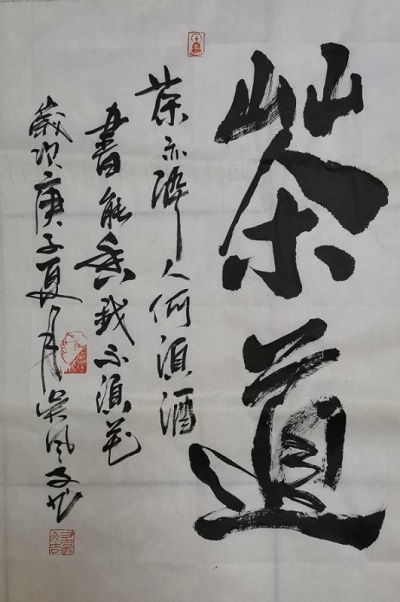 茶道
茶亦醉人何須酒
書能香我不須花
歲次庚子夏月吳風文书